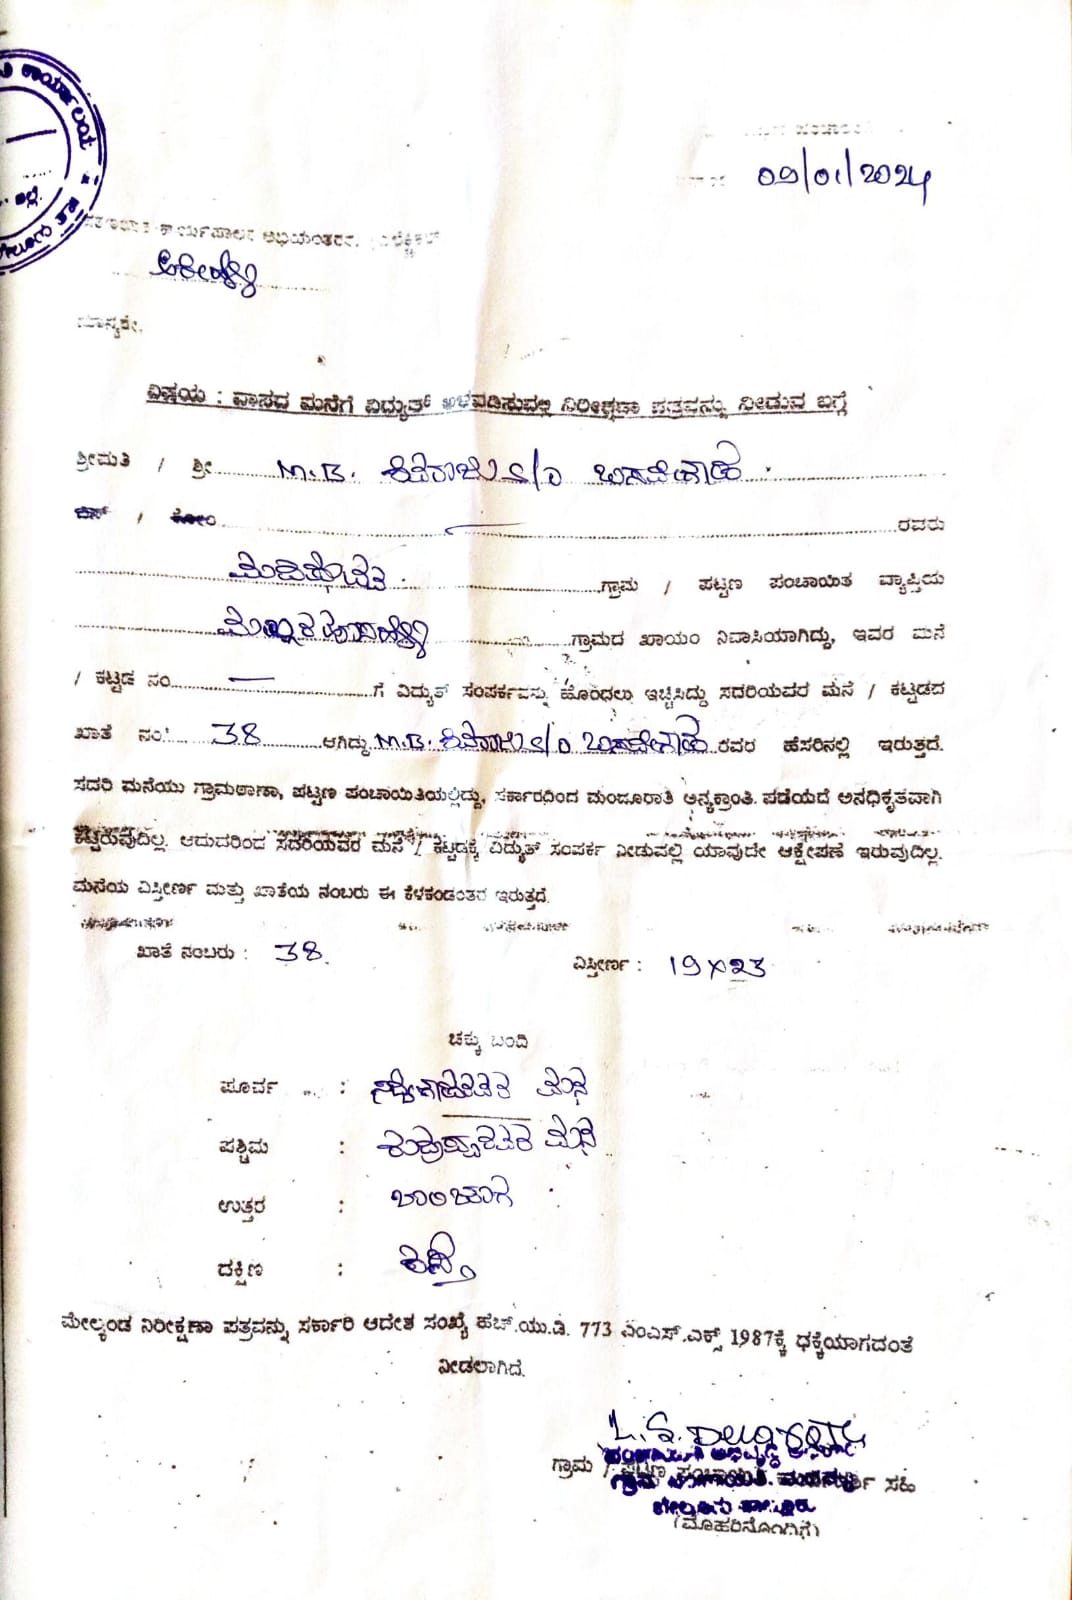 ಕಾರ್ಯಾಲಯ
09/01/2024
ಕಾರ್ಯಪಾಲಕ ಅಭಿಯಂತರರು,
ಮಾನ್ಯರೇ,
ವಿಷಯ : ವಾಸದ ಮನೆಗೆ ವಿದ್ಯುತ್ ಅಳವಡಿಸುವಲ್ಲಿ ನಿರೀಕ್ಷಣಾ ಪತ್ರವನ್ನು ನೀಡುವ ಬಗ್ಗೆ
ಶ್ರೀಮತಿ / ಶ್ರೀ M.B. ಶಿವರಾಜು S/O ಬಸವೇಗೌಡ
ಬಿನ್ / ಕೋಂ ರವರು
ಗ್ರಾಮ / ಪಟ್ಟಣ ಪಂಚಾಯಿತ ವ್ಯಾಪ್ತಿಯ
ಗ್ರಾಮದ ಖಾಯಂ ನಿವಾಸಿಯಾಗಿದ್ದು, ಇವರ ಮನೆ
/ ಕಟ್ಟಡ ನಂ. — ಗೆ ವಿದ್ಯುತ್ ಸಂಪರ್ಕವನ್ನು ಹೊಂದಲು ಇಚ್ಚಿಸಿದ್ದು ಸದರಿಯವರ ಮನೆ / ಕಟ್ಟಡದ
ಖಾತೆ ನಂ. 38 ಆಗಿದ್ದು M.B. ಶಿವರಾಜು S/O ಬಸವೇಗೌಡ ರವರ ಹೆಸರಿನಲ್ಲಿ ಇರುತ್ತದೆ.
ಸದರಿ ಮನೆಯು ಗ್ರಾಮಠಾಣಾ, ಪಟ್ಟಣ ಪಂಚಾಯಿತಿಯಲ್ಲಿದ್ದು, ಸರ್ಕಾರದಿಂದ ಮಂಜೂರಾತಿ ಅನ್ಯಕ್ರಾಂತಿ ಪಡೆಯದೆ ಅನಧಿಕೃತವಾಗಿ
ಕಟ್ಟಿರುವುದಿಲ್ಲ. ಆದುದರಿಂದ ಸದರಿಯವರ ಮನೆ / ಕಟ್ಟಡಕ್ಕೆ ವಿದ್ಯುತ್ ಸಂಪರ್ಕ ನೀಡುವಲ್ಲಿ ಯಾವುದೇ ಆಕ್ಷೇಪಣೆ ಇರುವುದಿಲ್ಲ.
ಮನೆಯ ವಿಸ್ತೀರ್ಣ ಮತ್ತು ಖಾತೆಯ ನಂಬರು ಈ ಕೆಳಕಂಡಂತರ ಇರುತ್ತದೆ.
ಖಾತೆ ನಂಬರು : 38. ವಿಸ್ತೀರ್ಣ : 19x23
ಚಕ್ಕು ಬಂದಿ
ಪೂರ್ವ : ಮನೆ
ಪಶ್ಚಿಮ : ಮನೆ
ಉತ್ತರ : ಖಾಲಿಜಾಗ
ದಕ್ಷಿಣ : ರಸ್ತೆ
ಮೇಲ್ಕಂಡ ನಿರೀಕ್ಷಣಾ ಪತ್ರವನ್ನು ಸರ್ಕಾರಿ ಆದೇಶ ಸಂಖ್ಯೆ ಹೆಚ್.ಯು.ಡಿ. 773 ಎಂಎಸ್.ಎಕ್ಸ್ 1987ಕ್ಕೆ ಧಕ್ಕೆಯಾಗದಂತೆ
ನೀಡಲಾಗಿದೆ.
ಪಂಚಾಯತಿ ಅಭಿವೃದ್ಧಿ ಅಧಿಕಾರಿ
ಗ್ರಾಮ / ಪಟ್ಟಣ ಪಂಚಾಯಿತಿ ಸಹಿ
(ಮೊಹರಿನೊಂದಿಗೆ)